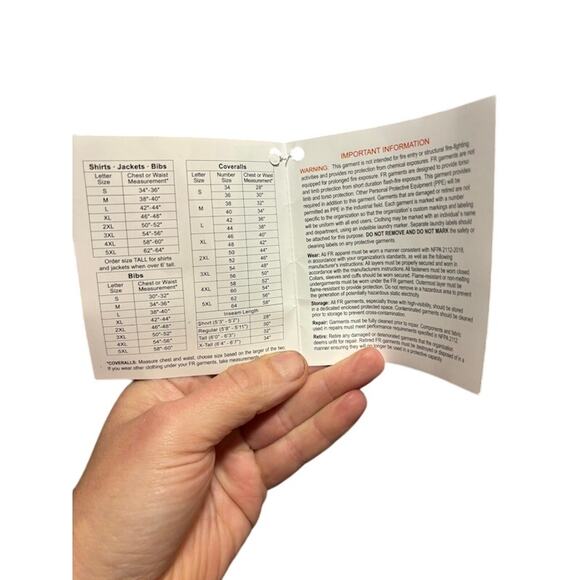 Shirts · Jackets · Bibs
Letter Size Chest or Waist Measurement*
S 34"-36"
M 38"-40"
L 42"-44"
XL 46"-48"
2XL 50"-52"
3XL 54"-56"
4XL 58"-60"
5XL 62"-64"
Order size TALL for shirts
and jackets when over 6' tall.
Bibs
Letter Size Chest or Waist Measurement*
S 30"-32"
M 34"-36"
L 38"-40"
XL 42"-44"
2XL 46"-48"
3XL 50"-52"
4XL 54"-56"
5XL 58"-60"
Coveralls
Letter Size Number Size Chest or Waist Measurement*
S 34 28"
36 30"
M 38 32"
40 34"
L 42 36"
44 38"
XL 46 40"
48 42"
2XL 50 44"
52 46"
3XL 54 48"
56 50"
4XL 58 52"
60 54"
5XL 62 56"
64 58"
Inseam Length
Short (5'3" - 5'7") 28"
Regular (5'8" - 5'11") 30"
Tall (6'0" - 6'3") 32"
X-Tall (6'4" - 6'7") 34"
*COVERALLS: Measure chest and waist, choose size based on the larger of the two.
If you wear other clothing under your FR garments, take measurements
IMPORTANT INFORMATION
WARNING: This garment is not intended for fire entry or structural fire-fighting
activities and provides no protection from chemical exposure. FR garments are not
equipped for prolonged fire exposure. FR garments are designed to provide torso
and limb protection from short duration flash-fire exposure. This garment provides
limb and torso protection. Other Personal Protective Equipment (PPE) will be
required in addition to this garment. Garments that are damaged or retired are not
permitted as PPE in the industrial field. Each garment is marked with a number
specific to the organization so that the organization's custom markings and labeling
will be uniform with all end users. Clothing may be marked with an individual's name
and department, using an indelible laundry marker. Separate laundry labels should
be attached for this purpose. DO NOT REMOVE AND DO NOT MARK the safety or
cleaning labels on any protective garments.
Wear: All FR apparel must be worn a manner consistent with NFPA 2112-2018,
in accordance with your organization's standards, as well as the following
manufacturer's instructions: All layers must be properly secured and worn in
accordance with the manufacturers instructions. All fasteners must be worn closed.
Collars, sleeves and cuffs should be worn secured. Flame-resistant or non-melting
undergarments must be worn under the FR garment. Outermost layer must be
flame-resistant to provide protection. Do not remove in a hazardous area to prevent
the generation of potentially hazardous static electricity.
Storage: All FR garments, especially those with high-visibility, should be stored
in a dedicated enclosed protective space. Contaminated garments should be cleaned
prior to storage to prevent cross-contamination.
Repair: Garments must be fully cleaned prior to repair. Components and fabric
used in repairs must meet performance requirements specified in NFPA 2112.
Retire: Retire any damaged or deteriorated garments that the organization
deems unfit for repair. Retired FR garments must be destroyed or disposed of in a
manner ensuring they will no longer be used in a protective capacity.